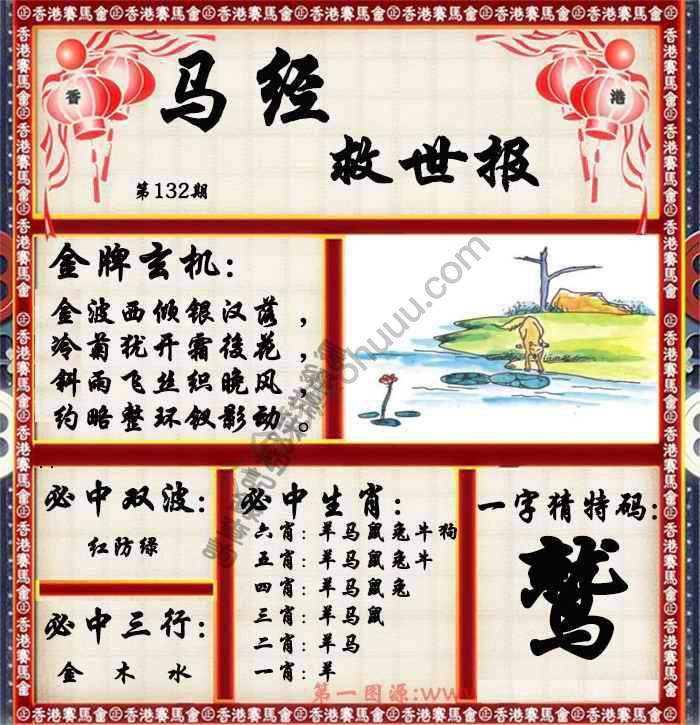 香港賽馬會
香 港
马经
救世报
第132期
金牌玄机:
金波西倾银汉落,
冷菊犹开霜後花,
斜雨飞丝织晚风,
约略整环钗影动。
必中双波:
红防绿
必中三行:
金 木 水
必中生肖:
六肖:羊马鼠兔牛狗
五肖:羊马鼠兔牛
四肖:羊马鼠兔
三肖:羊马鼠
二肖:羊马
一肖:羊
一字猜特码:
鹫
第一图源:www